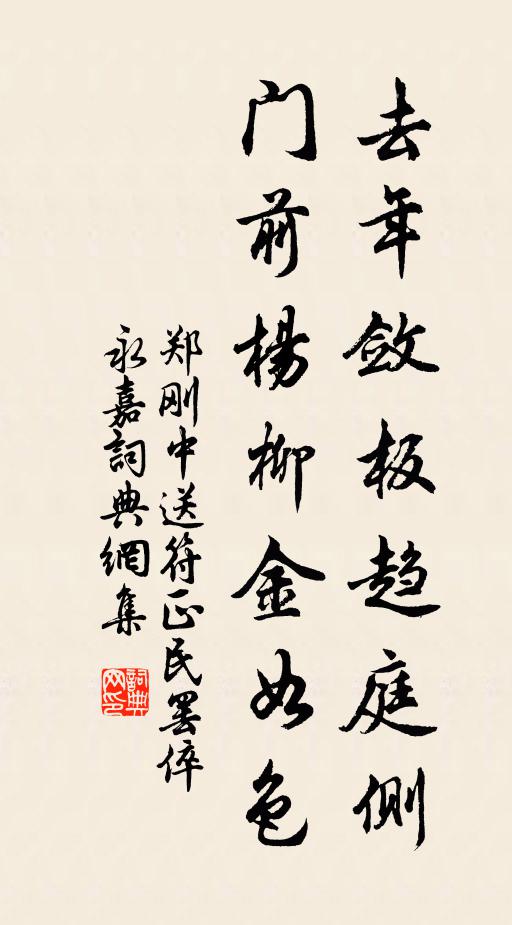 去年斂板趨庭側
門前楊柳金如色
郑刚中送符正民罢倅
永嘉詞典網集
詞典
网印